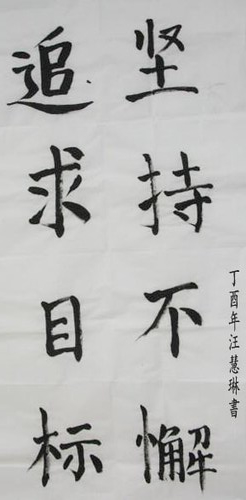 坚持不懈
追求目标
丁酉年汪慧琳書